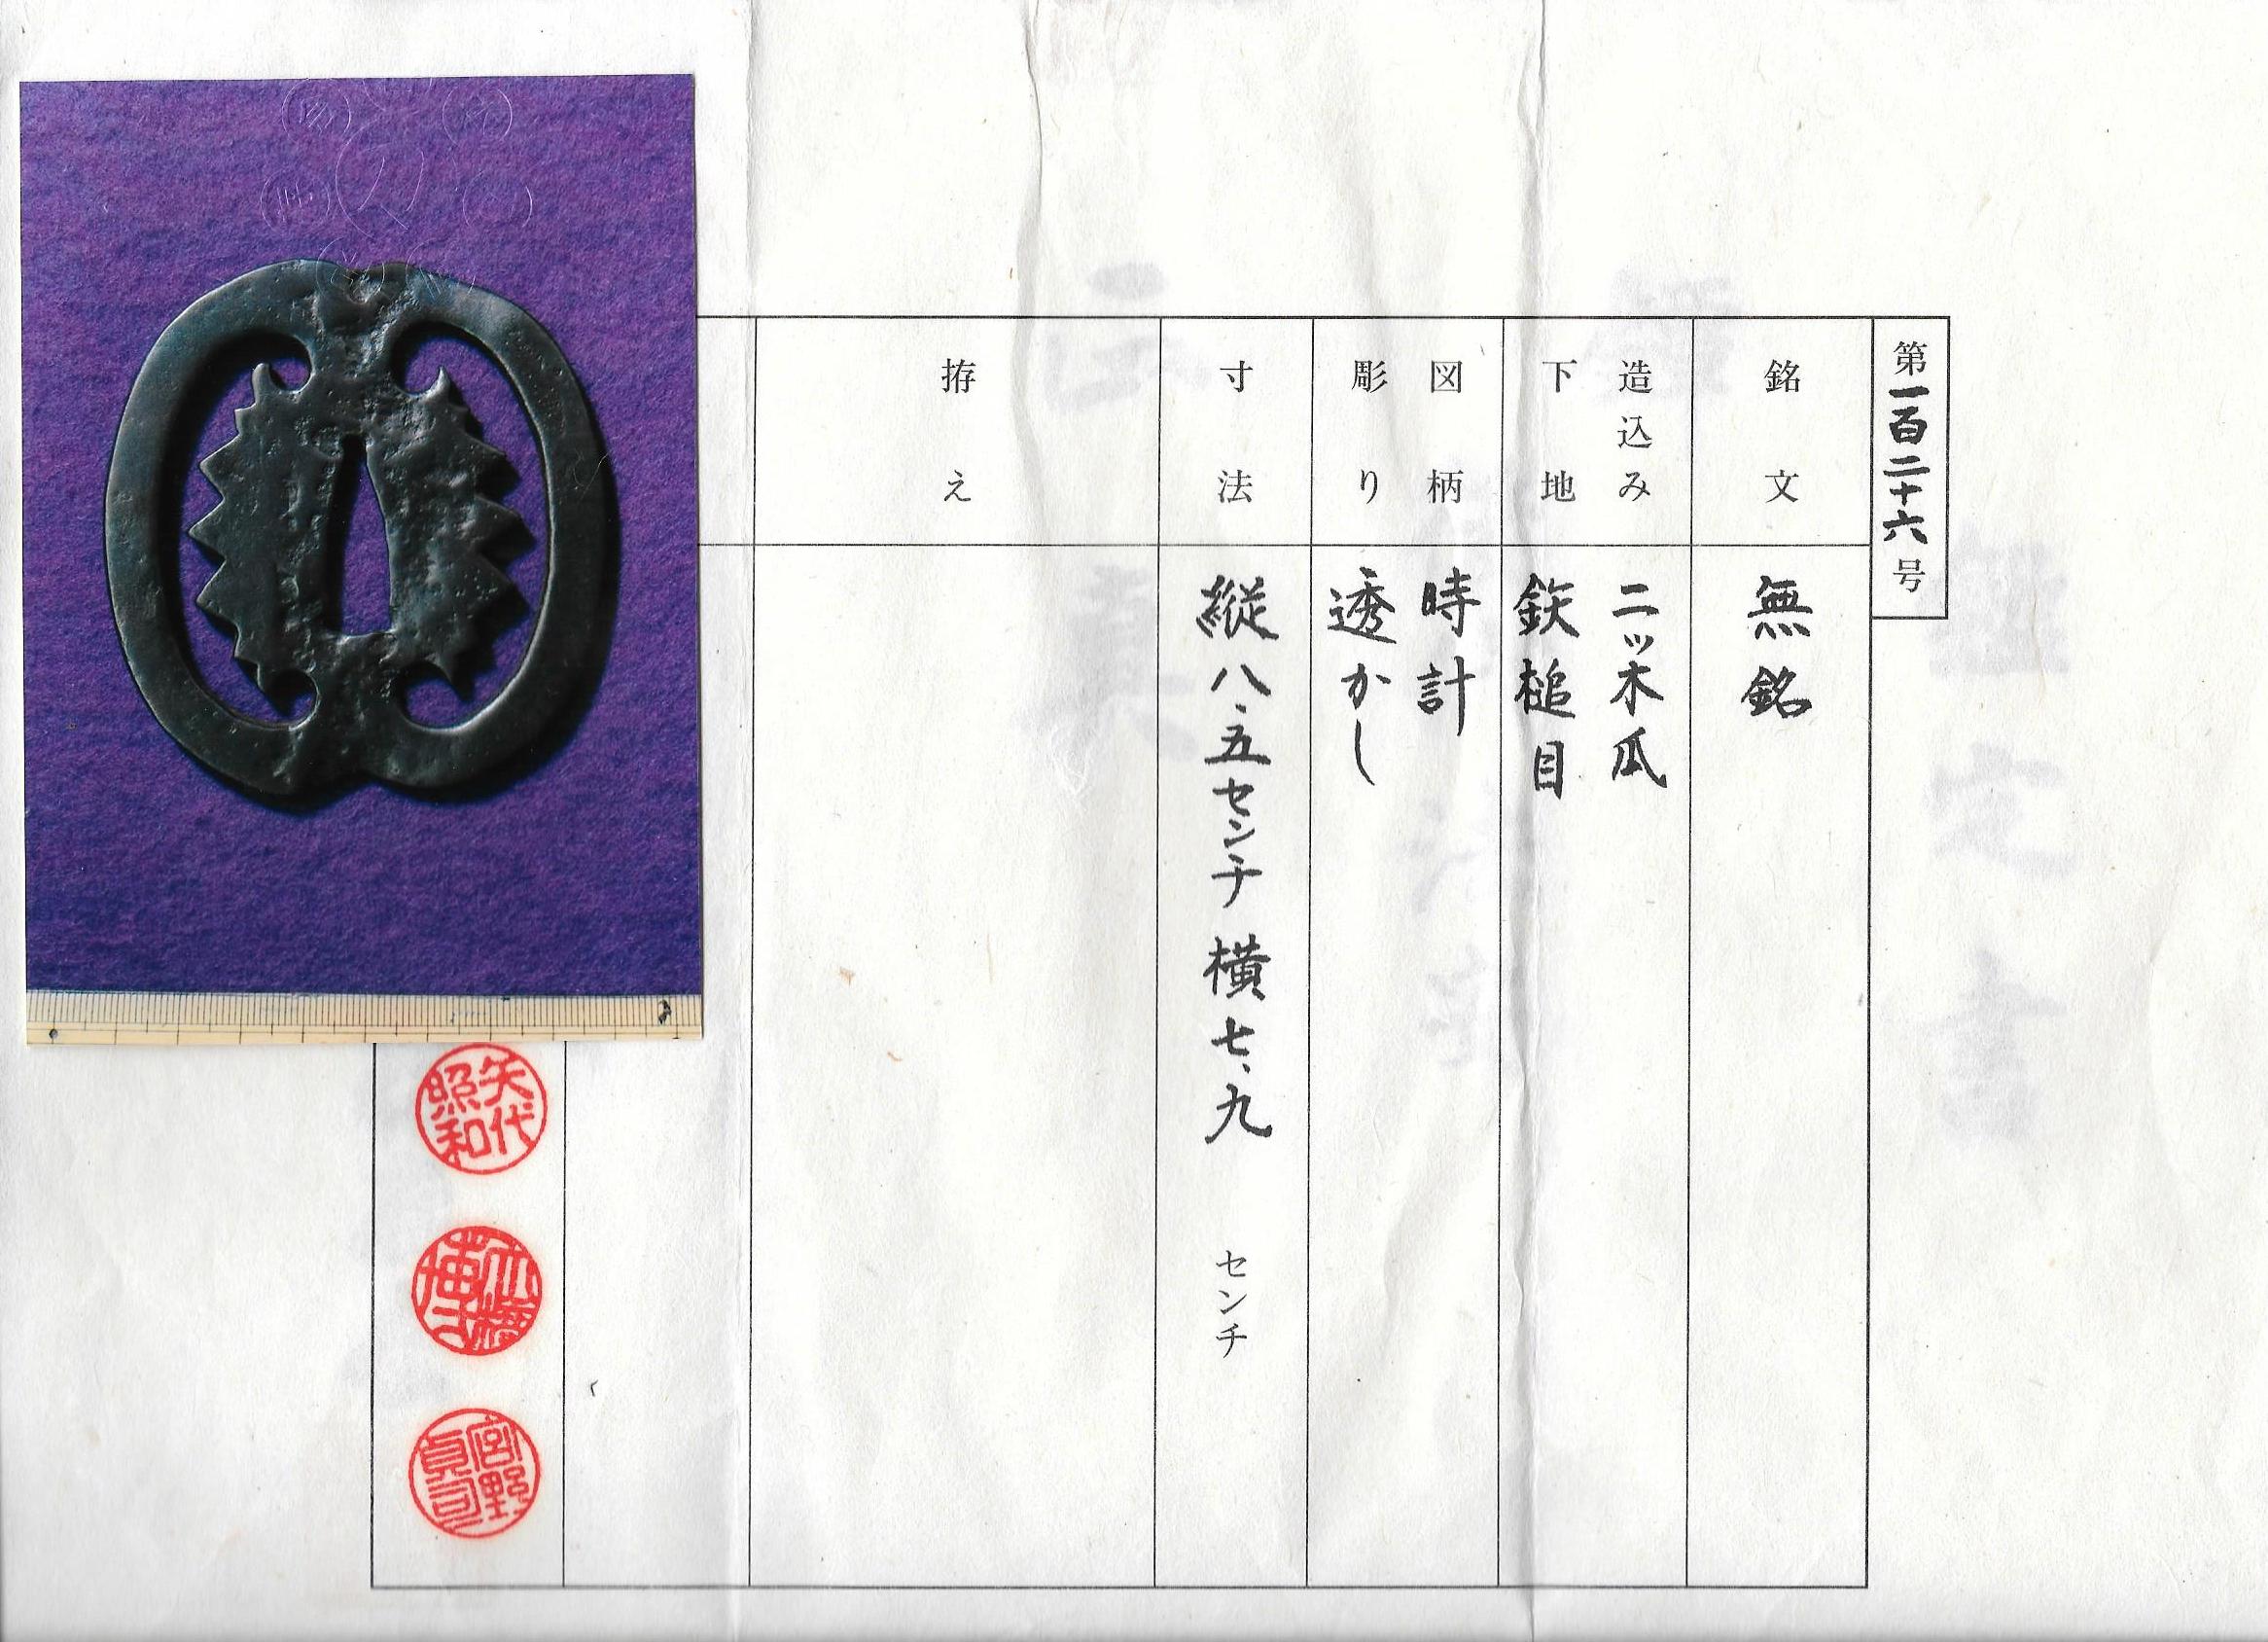 第一百二十六号
銘文
無銘
造込み
下地
二ッ木瓜
鉄槌目
図柄
彫り
時計
透かし
寸法
縦八、五センチ 横七、九 センチ
拵え
矢代
照和
宮野
貞司